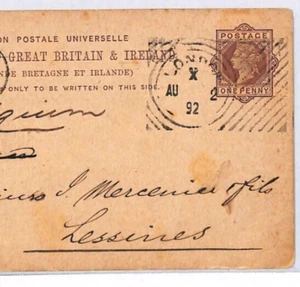 ON POSTALE UNIVERSELLE
GREAT BRITAIN & IRELAND
DE BRETAGNE ET IRLANDE)
ONLY TO BE WRITTEN ON THIS SIDE.
POSTAGE
ONE PENNY
LONDON
X
AU 2
92
J. Mercenier & fils
Lessines